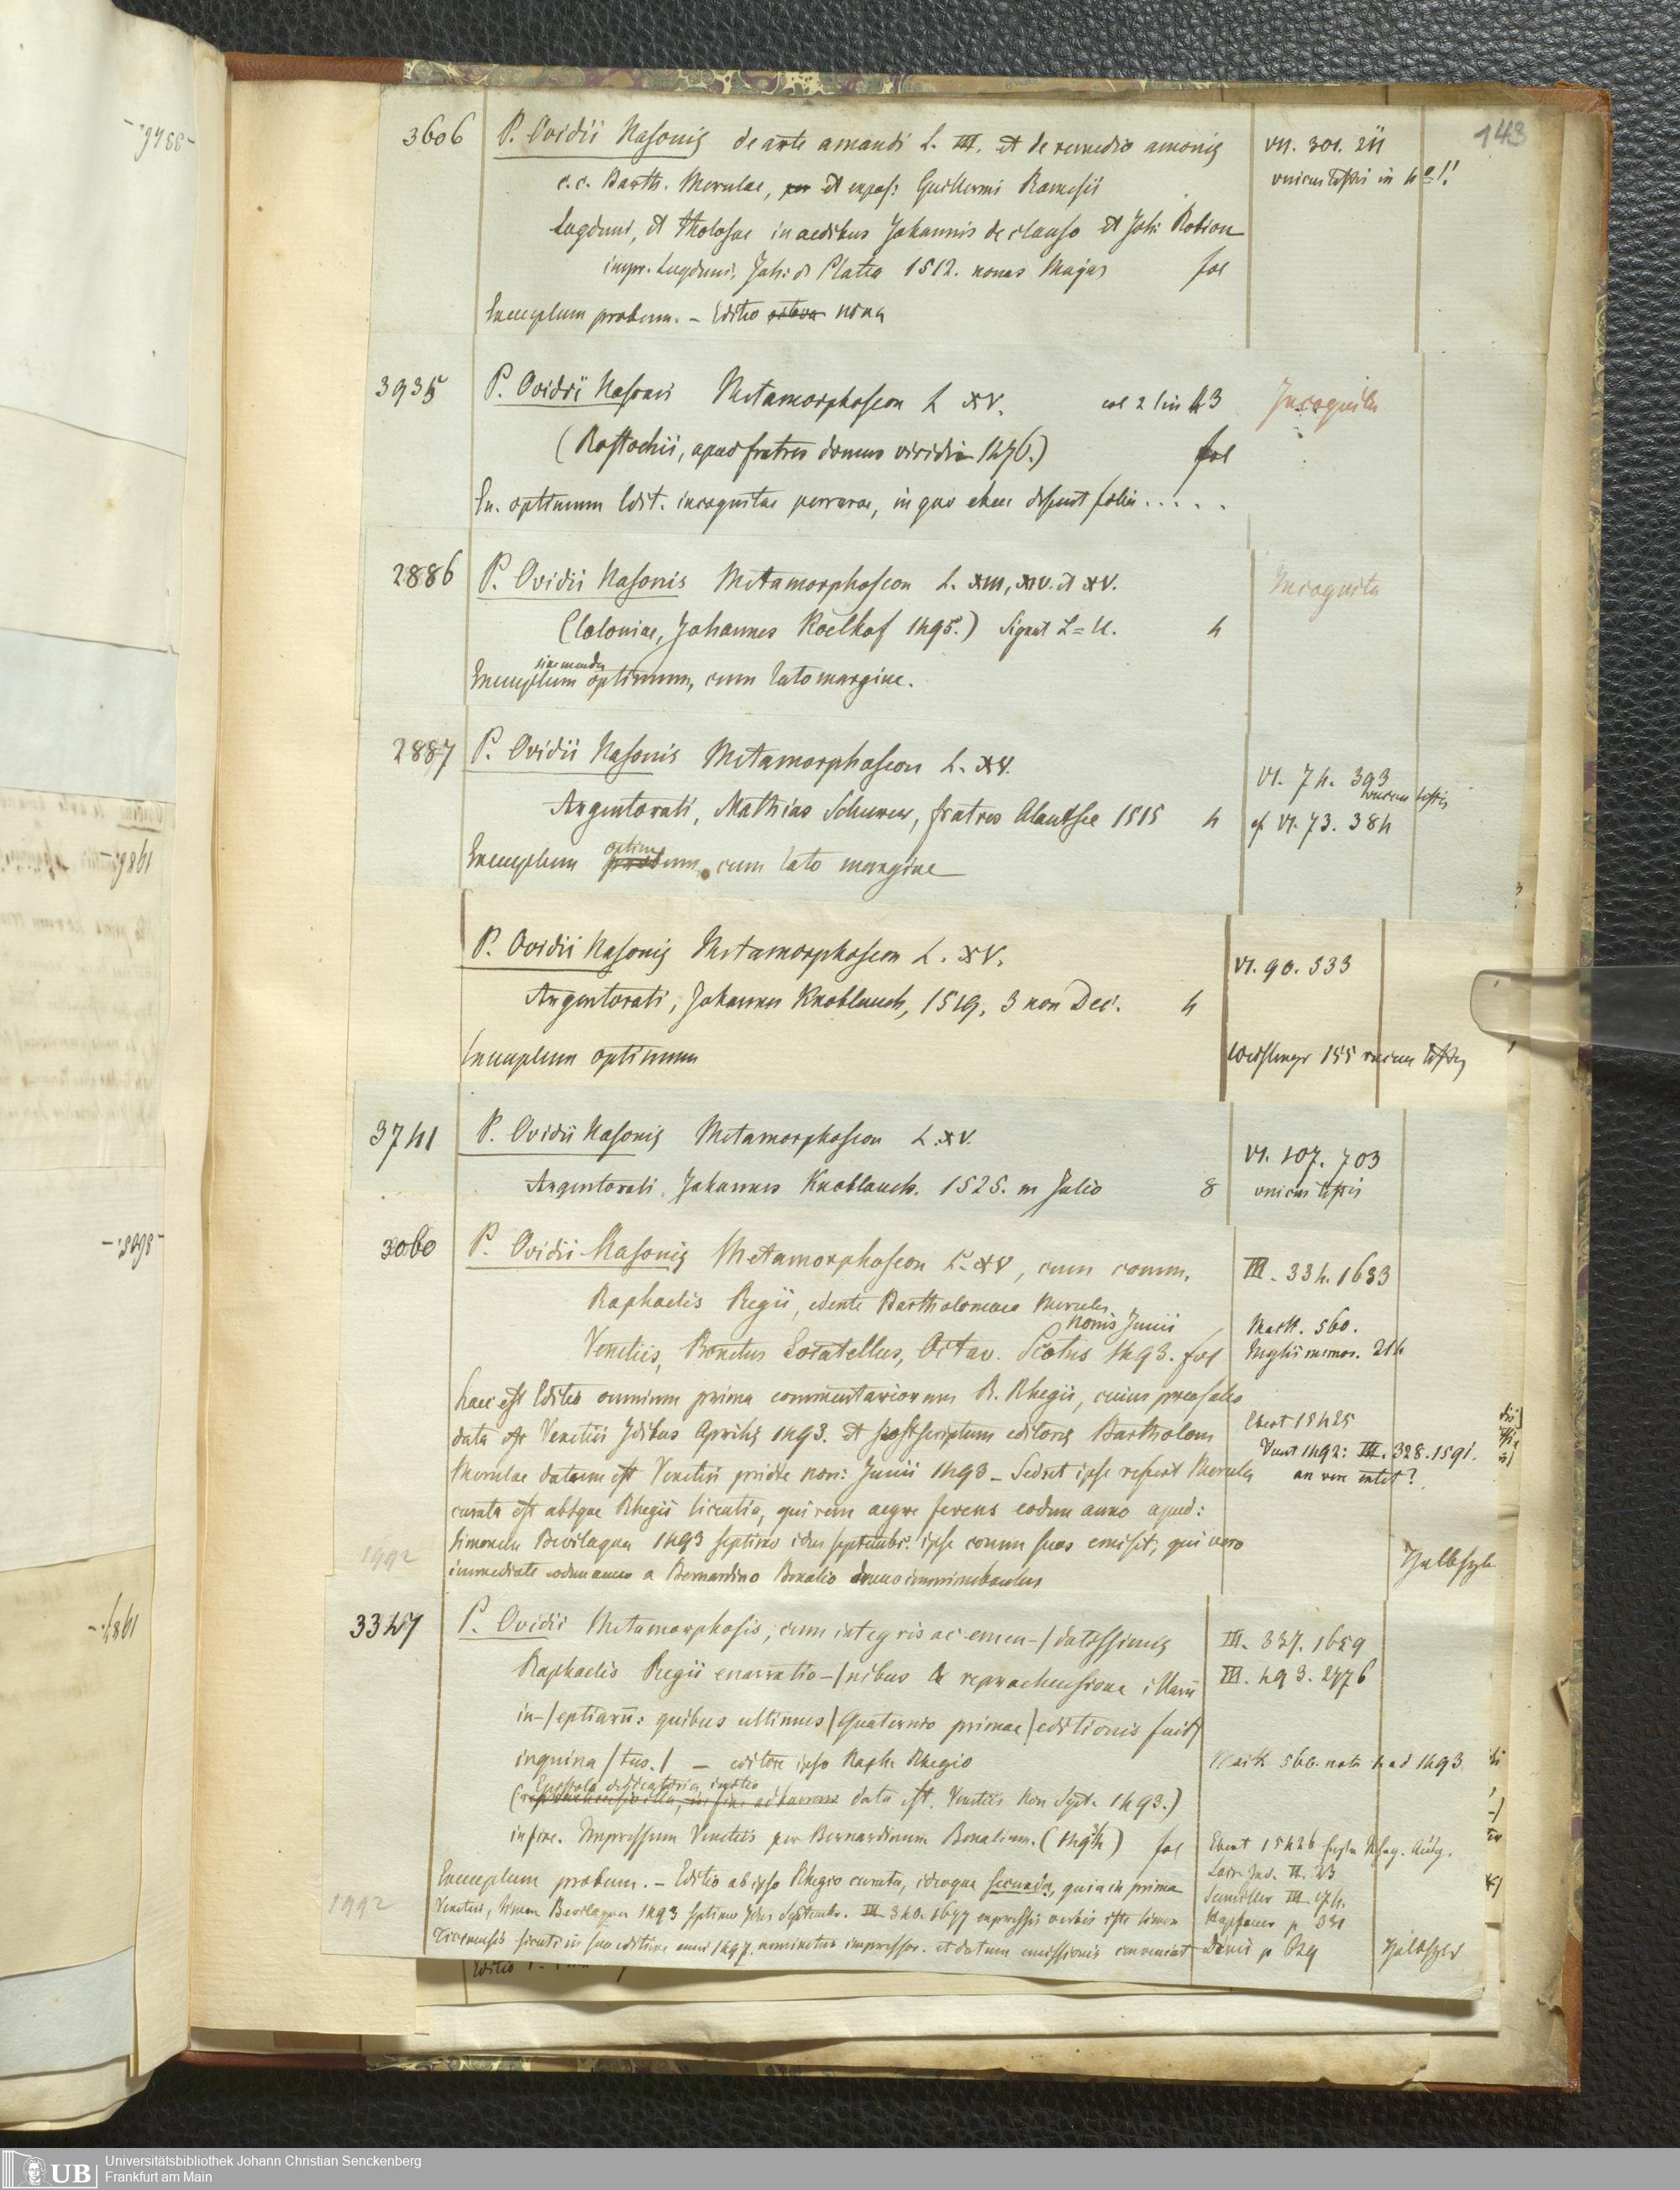 143
3606 P. Ovidii Nasonis de arte amandi L. III. et de remedio amoris VII. 301. 211
c. c. Barth. Merulae, et expos: Guillermi Ramesii unicus testis in 4o!!
Lugduni, et Tholosae in aedibus Johannis de clauso et Joh: Robion
impr. Lugduni, Joh: de Platea 1512. nonas Majas fol
Exemplum probum. – Editio nova
3935 P. Ovidii Nasonis Metamorphoseon L XV. col 2 lin 43 Incognita
(Rostochii, apud fratres domus viridis 1476.) fol
Ex. optimum Edit. incognitae perrarae, in quo desunt folia . . . . .
2886 P. Ovidii Nasonis Metamorphoseon L. XIII, XIV. et XV. Incognita
(Coloniae, Johannes Koelhof 1495.) Signat L= U. 4
sine menda
Exemplum optimum, cum lato margine.
2887 P. Ovidii Nasonis Metamorphoseon L. XV.
VI. 74. 393
Argentorati, Mathias Schurer, fratres Alantsee 1515 4 cf. VI. 73. 384
Exemplum optimum, cum lato margine
P. Ovidii Nasonis Metamorphoseon L. XV. VI. 90. 533
Argentorati, Johannes Knoblauch, 1519. 3 non Dec. 4
Exemplum optimum 155 testis
3741 P. Ovidii Nasonis Metamorphoseon L. XV. VI. 107. 703
Argentorati, Johannes Knoblauch. 1525. m Julio 8 unicus testis
3060 P. Ovidii Nasonis Metamorphoseon L. XV, cum comm. III. 334. 1633
Raphaelis Regii, edente Bartholomaeo Merula
nonis Junii Maitt. 560.
Venetiis, Bonetus Locatellus, Octav. Scotus 1493. fol 214
haec est Editio omnium prima commentariorum R. Rhegii, cuius praefatio
data est Venetiis Idibus Aprilis 1493. et postscriptum editoris Bartholom Ebert 15425
1492: III. 328. 1591.
Merulae datum est Venetiis pridie non: Junii 1493 – Sed ut ipse refert Merula an vere extet?
curata est absque Rhegii licentia, qui rem aegre ferens eodem anno apud:
Simonem Bevilaqua 1493 septimo idus septembr. ipse comm suos emisit, qui vero
1992 immediate eodem anno a Bernardino Benalio imprimebantur
3347 P. Ovidii Metamorphosis, cum integris ac emen-/datissimis III. 337. 1659
Raphaelis Regii enarratio-/nibus & reprehensione illarū III. 493. 2476
in-/eptiarū: quibus ultimus/Quaternio primae/editionis fuit/
inquina/tus./ – editore ipso Raph. Rhegio Maitt. 566. nota 4 ad 1493.
Epistola dedicatoria initio
data est. Venetiis Non Sept. 1493.)
in fine. Impressum Venetiis per Bernardinum Benalium. fol Ebert 15426
Exemplum probum. – Editio ab ipso Rhegio curata, ideoque secunda, quia in prima
1992 Venetiis, Simon Bevilaqua 1493 septimo Idus Septembr. III 340. 1677 expressis verbis iste Simon
Ticinensis sicuti in sua editione anni 1497. nominetur impressor. et datum emissionis conveniat Denis p 829
Editio
UB Universitätsbibliothek Johann Christian Senckenberg
Frankfurt am Main